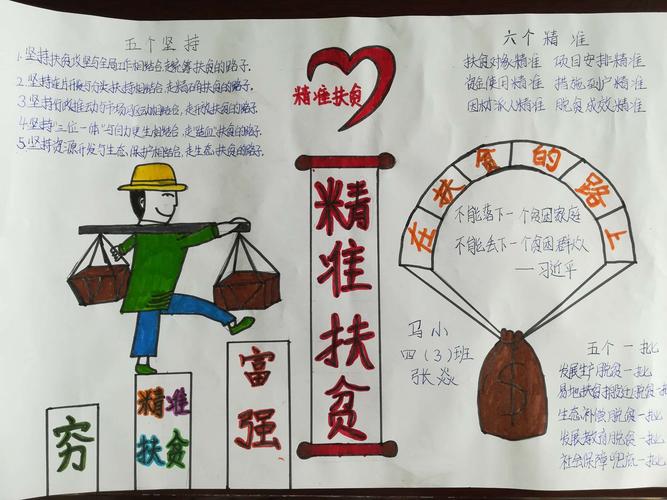 五个坚持
1.坚持扶贫攻坚与全局工作相结合,走统筹扶贫的路子.
2.坚持连片开发与分类扶持相结合,走精确扶贫的路子.
3.坚持行政推动与市场驱动相结合,走开放扶贫的路子.
4.坚持"三位一体"与自力更生相结合,走"造血"扶贫的路子.
5.坚持资源开发与生态保护相结合,走生态扶贫的路子.
精准扶贫
六个精准
扶贫对象精准 项目安排精准
资金使用精准 措施到户精准
因村派人精准 脱贫成效精准
精准扶贫
在扶贫的路上
不能落下一个贫困家庭
不能丢下一个贫困群众
——习近平
马小
四(3)班
张焱
五个一批
发展生产脱贫一批
易地扶贫搬迁脱贫一批
生态补偿脱贫一批
发展教育脱贫一批
社会保障兜底一批
穷
精准
扶贫
富强
$